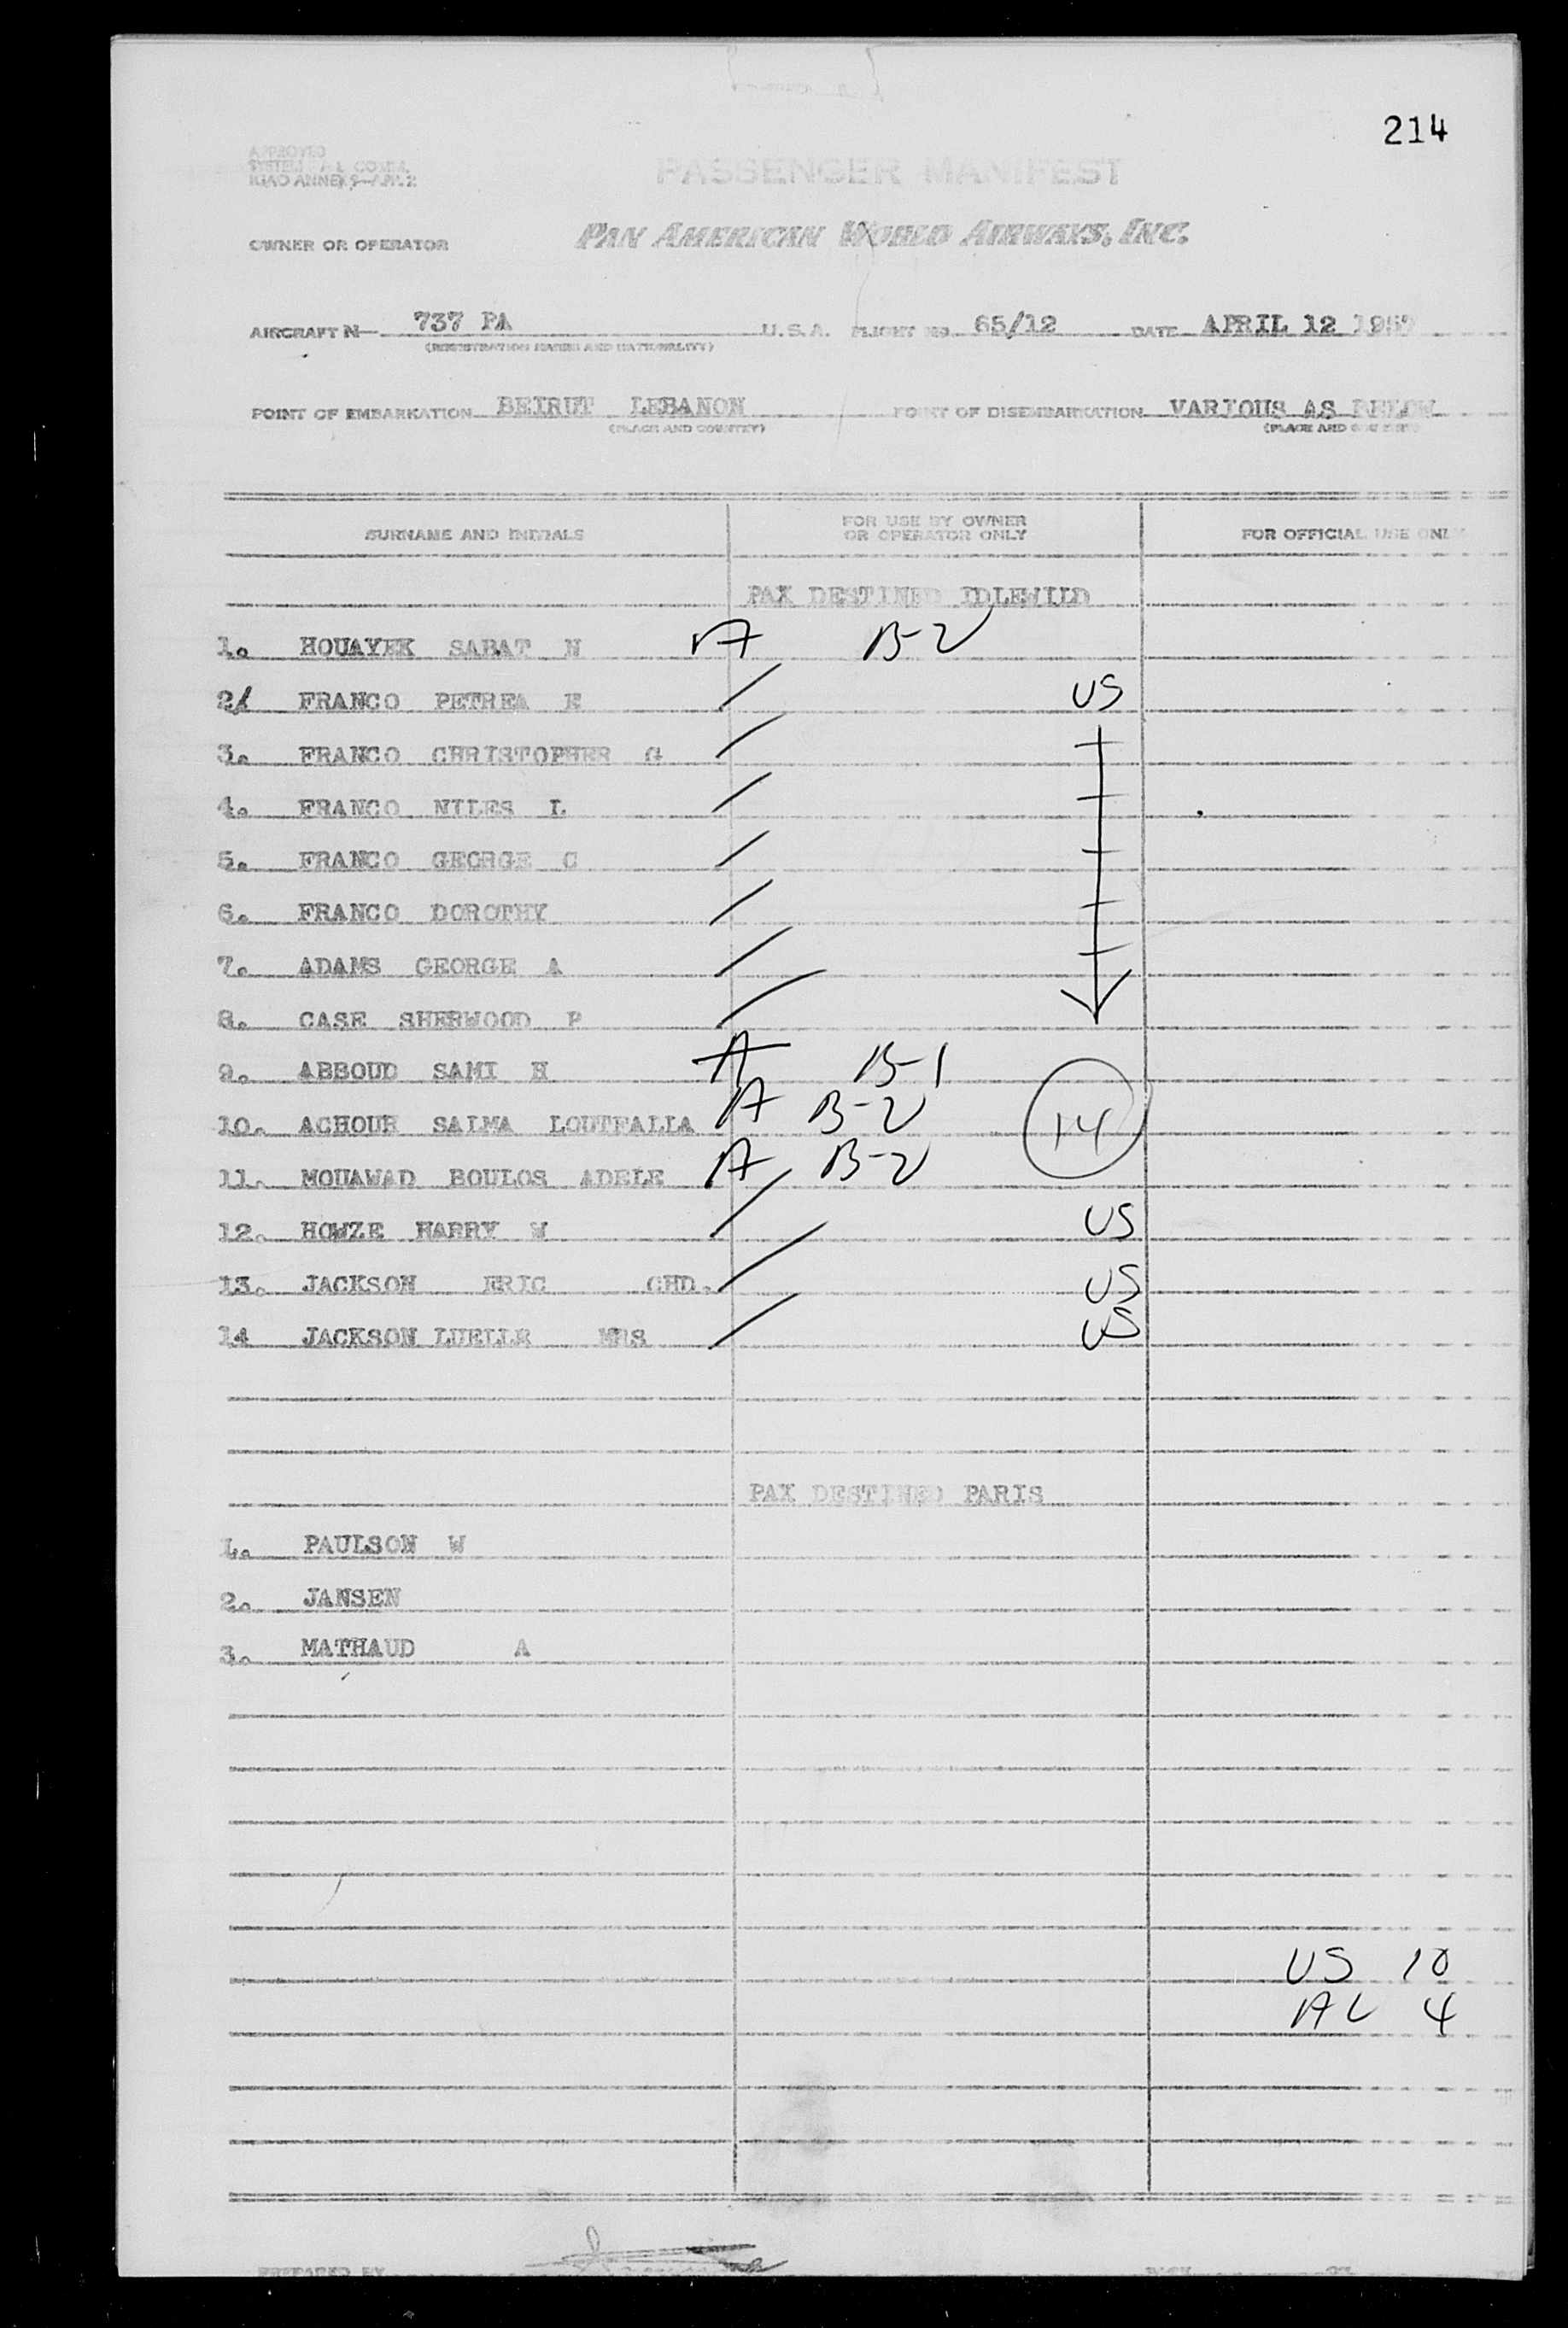 214
APPROVED
PASSENGER MANIFEST
OWNER OR OPERATOR PAN AMERICAN WORLD AIRWAYS, INC.
AIRCRAFT N— 737 PA U.S.A. FLIGHT NO. 65/12 DATE APRIL 12 1957
(REGISTRATION MARKS AND NATIONALITY)
POINT OF EMBARKATION BEIRUT LEBANON POINT OF DISEMBARKATION VARIOUS AS BELOW
(PLACE AND COUNTRY) (PLACE AND COUNTRY)
SURNAME AND INITIALS FOR USE BY OWNER OR OPERATOR ONLY FOR OFFICIAL USE ONLY
PAX DESTINED IDLEWILD
1. HOUAYEK SABAT N A B-2
2. FRANCO PETREA E / US
3. FRANCO CHRISTOPHER G /
4. FRANCO NILES L /
5. FRANCO GEORGE C /
6. FRANCO DOROTHY /
7. ADAMS GEORGE A /
8. CASE SHERWOOD P /
9. ABBOUD SAMI H A B-1
10. ACHOUR SALMA LOUTFALLA A B-2 14
11. MOUAWAD BOULOS ADELE A B-2
12. HOWZE HARRY W / US
13. JACKSON ERIC CHD. / US
14 JACKSON LUELLE MRS / US
PAX DESTINED PARIS
1. PAULSON W
2. JANSEN
3. MATHAUD A
US 10
AL 4
PREPARED BY